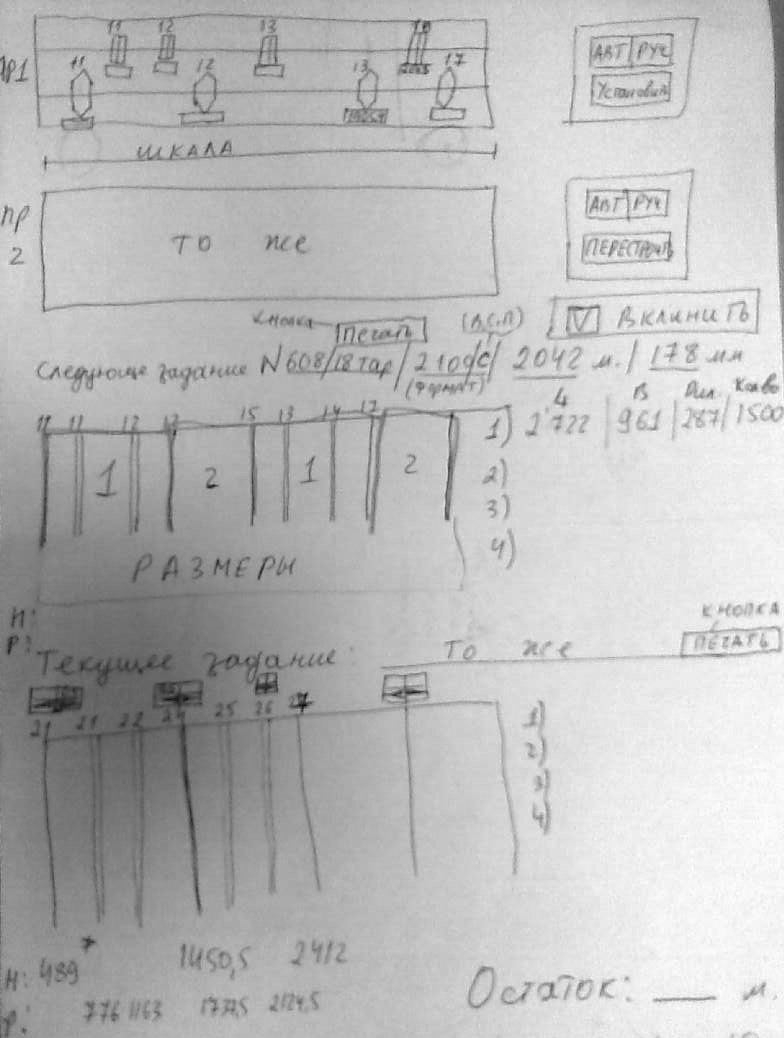 11 12 13 16
ПР1 11 12 13 17 АВТ РУЧ
УСТАНОВИТЬ
ШКАЛА
ПР 2 ТО ЖЕ АВТ РУЧ
ПЕРЕСТРОИТЬ
КНОПКА ПЕЧАТЬ (В,С,П) V ВКЛИНИТЬ
Следующе задание N 608/18 тар/ 2100/С/ 2042 м. / 178 мм
(ФОРМАТ)
Д В Рил. Кол во
11 11 12 12 15 13 14 17 1) 2722 | 961 | 287 / 1500
1 2 1 2 2)
3)
4)
РАЗМЕРЫ
Н:
Р:
КНОПКА
Текущее задание: ТО ЖЕ ПЕЧАТЬ
21 21 22 24 25 26 27 1)
2)
3)
4)
Н: 489 * 1450,5 2412
Р: 776 1163 1737,5 2124,5
Остаток: ___ м.